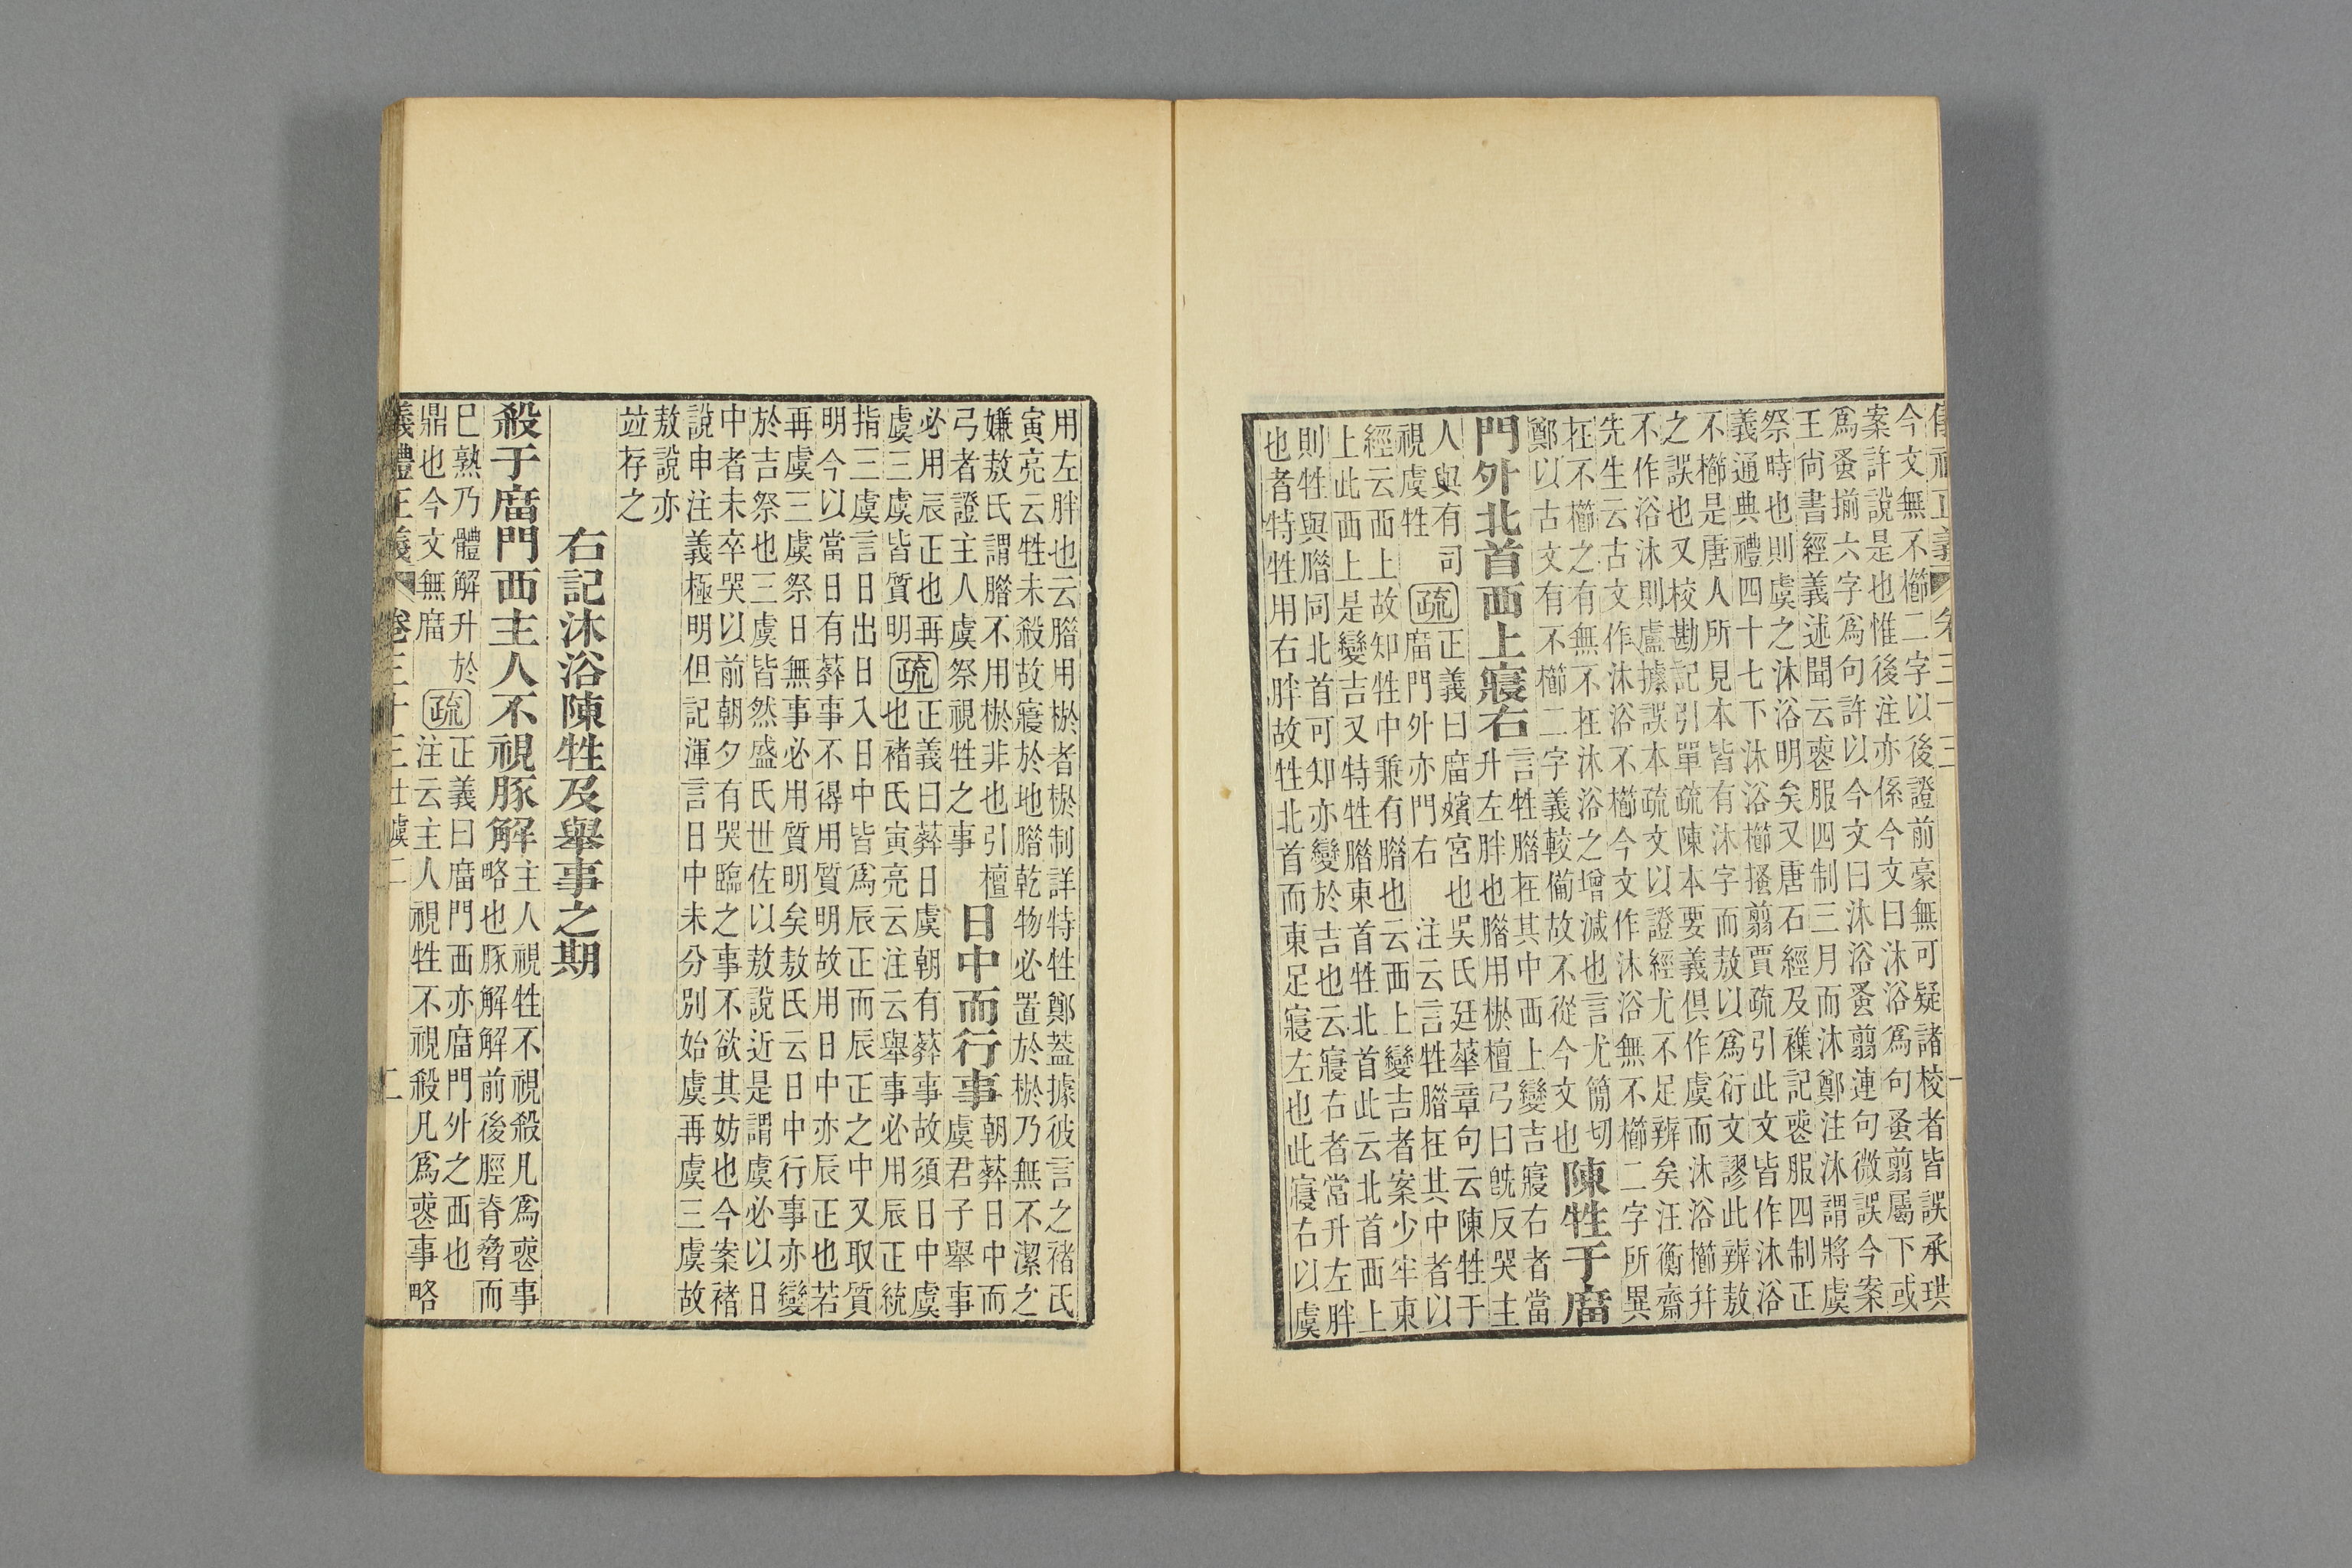 今文無不櫛二字以後證前豪無可疑諸校者皆誤承珙
案許說是也惟後注亦係今文曰沐浴爲句蚤翦屬下或
爲蚤揃六字爲句許以今文曰沐浴蚤翦連句微誤今案
王尚書經義述聞云喪服四制三月而沐鄭注沐謂將虞
祭時也則虞之沐浴明矣又唐石經及襍記喪服四制正
義通典禮四十七下沐浴櫛搔翦賈疏引此文皆作沐浴
不櫛是唐人所見本皆有沐字而敖以爲衍文謬此辨敖
之誤也又校勘記引單疏陳本要義俱作虞而沐浴櫛幷
不作浴沐則盧據誤本疏文以證經尤不足辨矣汪衡齋
先生云古文作沐浴不櫛今文作沐浴無不櫛二字所異
在不櫛之有無不在沐浴之增減也言尤簡切
鄭以古文有不櫛二字義較備故不從今文也
陳牲于庿
門外北首西上寢右
言牲腊在其中西上變吉寢右者當
升左胖也腊用棜檀弓曰旣反哭主
人與有司
視虞牲
疏
正義曰庿嬪宮也吳氏廷華章句云陳牲于
庿門外亦門右 注云言牲腊在其中者以
經云西上故知牲中兼有腊也云西上變吉者案少牢東
上此西上是變吉又特牲腊東首牲北首此云北首西上
則牲與腊同北首可知亦變於吉也云寢右者當升左胖
也者特牲用右胖故牲北首而東足寢左也此寢右以虞
用左胖也云腊用棜者棜制詳特牲鄭蓋據彼言之褚氏
寅亮云牲未殺故寢於地腊乾物必置於棜乃無不潔之
嫌敖氏謂腊不用棜非也引檀
弓者證主人虞祭視牲之事
日中而行事
朝葬日中而
虞君子舉事
必用辰正也再
虞三虞皆質明
疏
正義曰葬日虞朝有葬事故須日中虞
也褚氏寅亮云注云舉事必用辰正統
指三虞言日出日入日中皆爲辰正而辰正之中又取質
明今以當日有葬事不得用質明故用日中亦辰正也若
再虞三虞祭日無事必用質明矣敖氏云日中行事亦變
於吉祭也三虞皆然盛氏世佐以敖說近是謂虞必以日
中者未卒哭以前朝夕有哭臨之事不欲其妨也今案褚
說申注義極明但記渾言日中未分別始虞再虞三虞故
敖說亦
竝存之
右記沐浴陳牲及舉事之期
殺于庿門西主人不視豚解
主人視牲不視殺凡爲喪事
略也豚解解前後脛脊脅而
已熟乃體解升於
鼎也今文無庿
疏
正義曰庿門西亦庿門外之西也
注云主人視牲不視殺凡爲喪事略